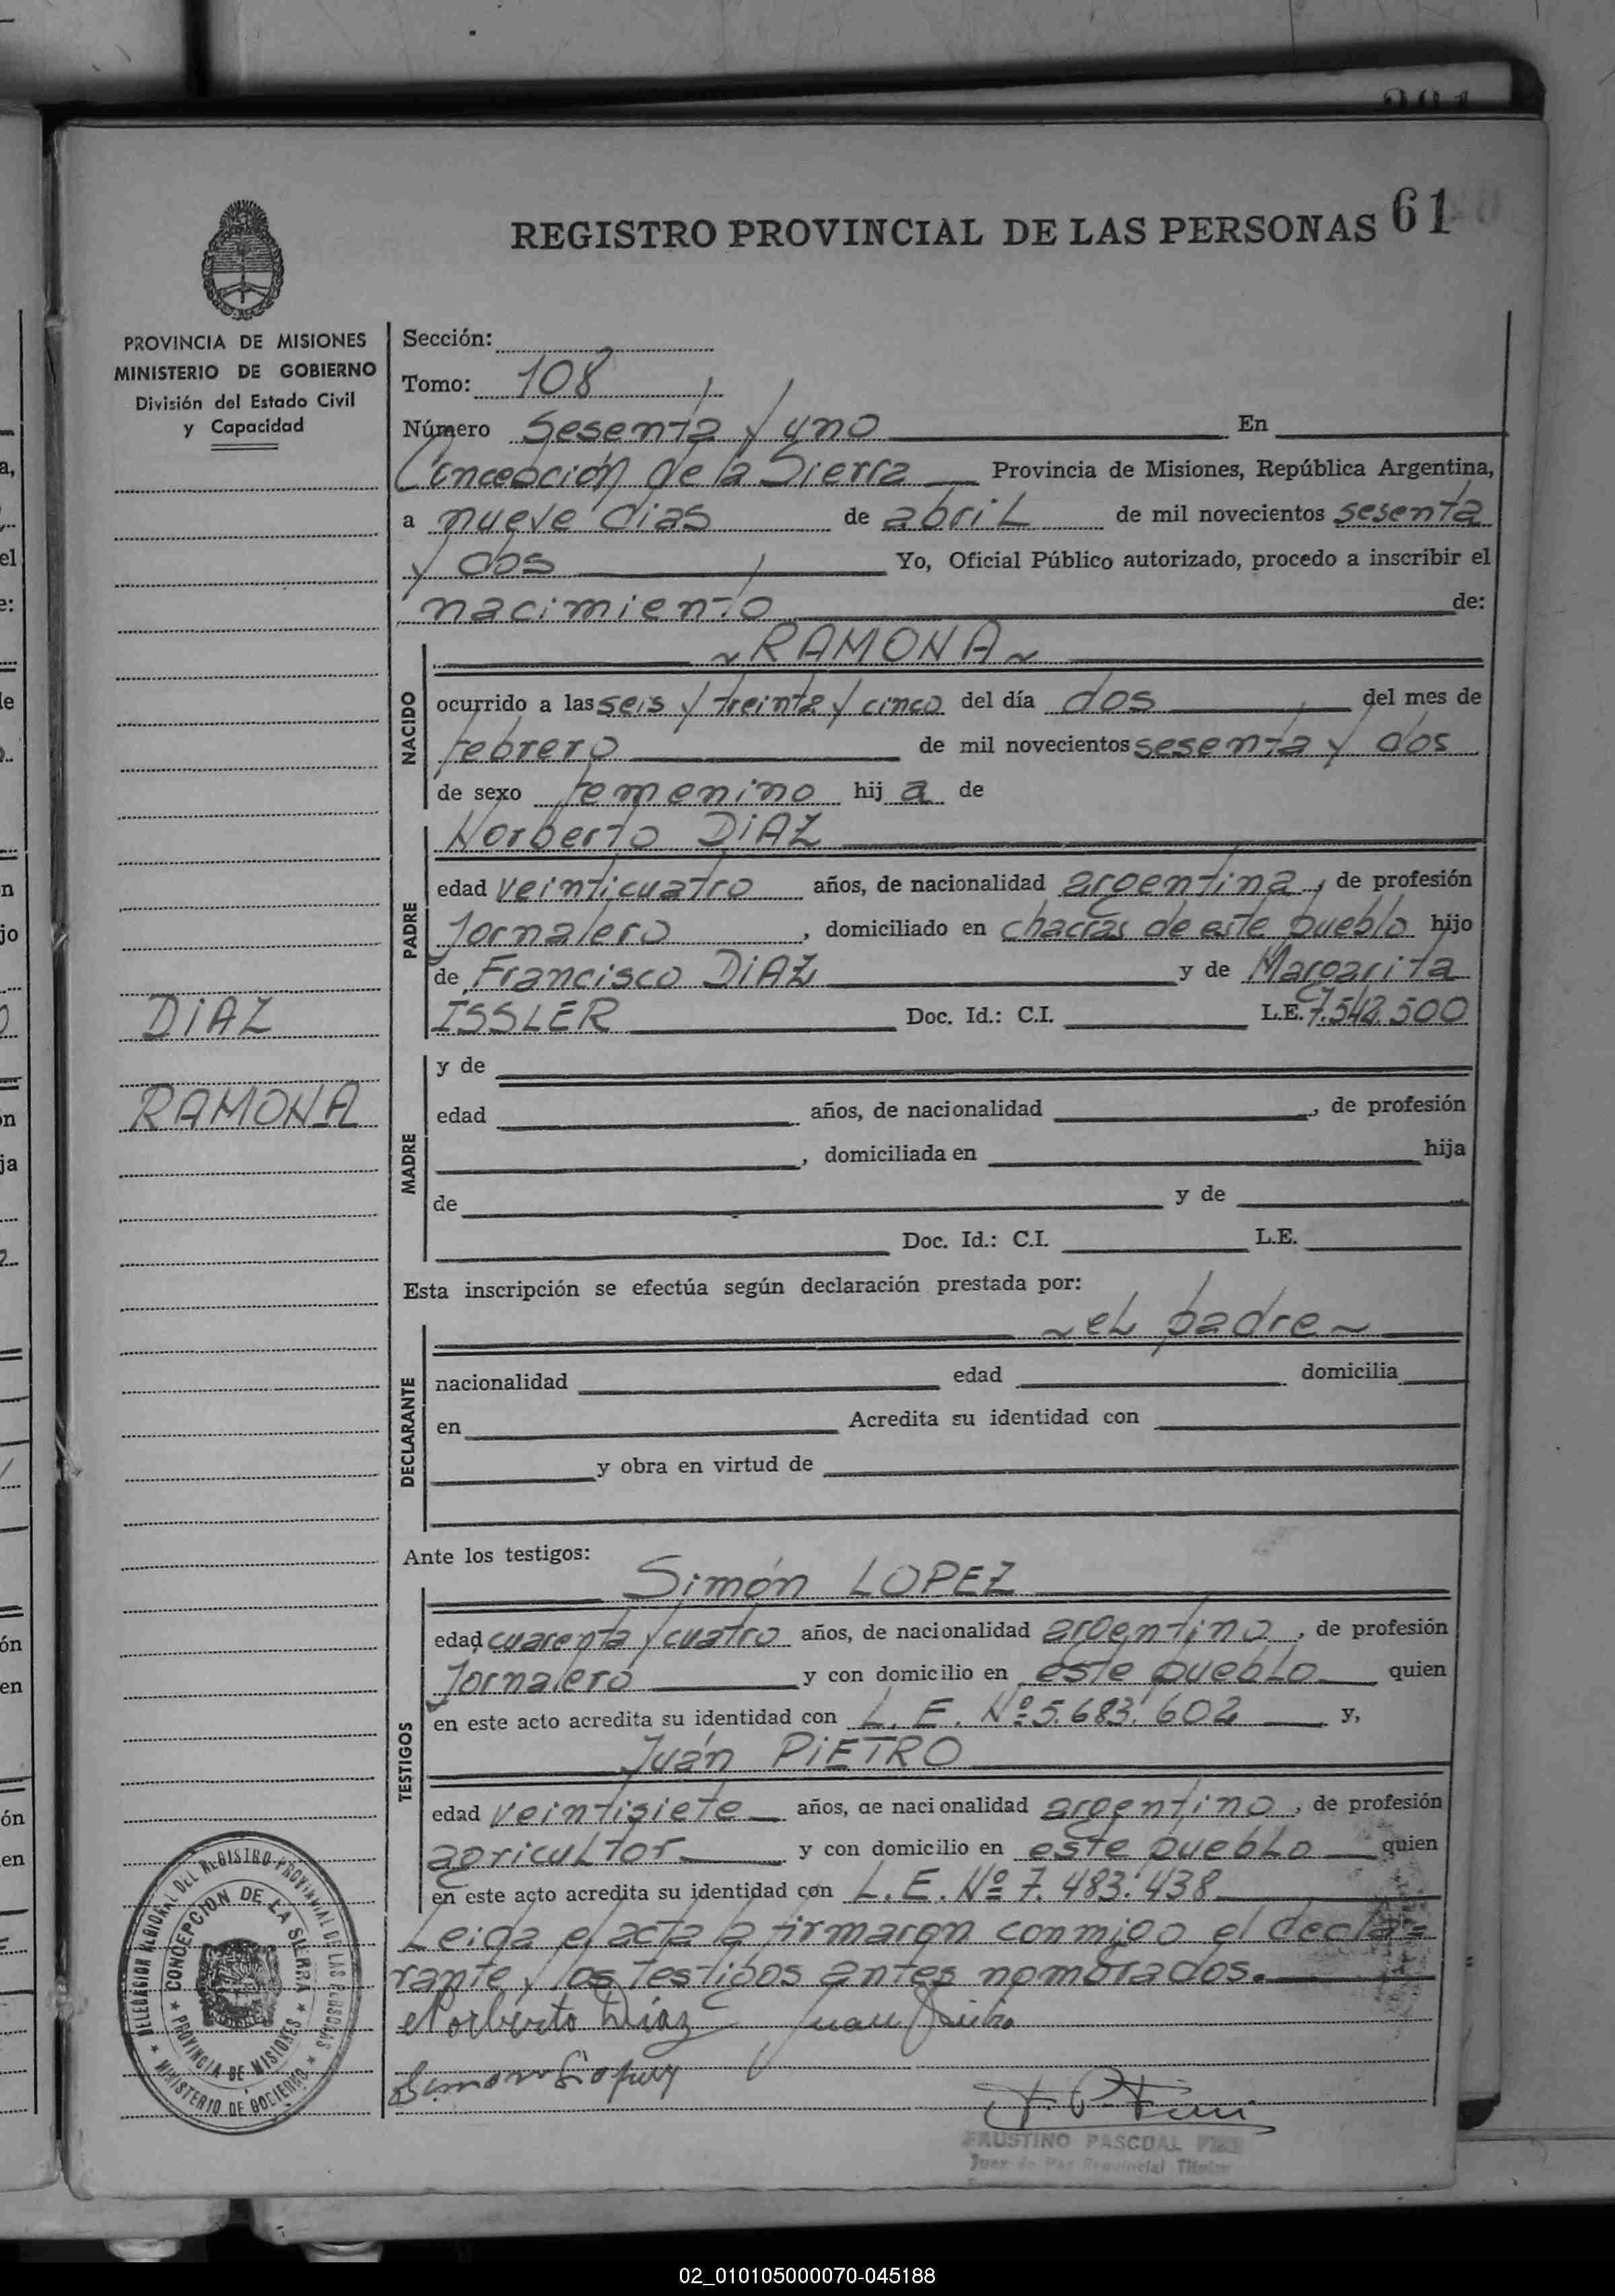 REGISTRO PROVINCIAL DE LAS PERSONAS 61
PROVINCIA DE MISIONES
MINISTERIO DE GOBIERNO
División del Estado Civil
y Capacidad
Sección:
Tomo: 108
Número Sesenta y uno En
Concepción de la Sierra Provincia de Misiones, República Argentina,
a nueve dias de abril de mil novecientos sesenta
y dos Yo, Oficial Público autorizado, procedo a inscribir el
nacimiento de:
NACIDO
~RAMONA~
ocurrido a las seis y treinta y cinco del día dos del mes de
febrero de mil novecientos sesenta y dos
de sexo femenino hij a de
PADRE
Norberto DIAZ
edad veinticuatro años, de nacionalidad argentina, de profesión
Jornalero, domiciliado en chacras de este pueblo hijo
de Francisco DIAZ y de Margarita
ISSLER Doc. Id.: C.I. L.E. 7.542.500
DIAZ
RAMONA
MADRE
y de
edad años, de nacionalidad , de profesión
, domiciliada en hija
de y de
Doc. Id.: C.I. L.E.
Esta inscripción se efectúa según declaración prestada por:
DECLARANTE
~el padre~
nacionalidad edad domicilia
en Acredita su identidad con
y obra en virtud de
Ante los testigos:
TESTIGOS
Simón LOPEZ
edad cuarenta y cuatro años, de nacionalidad argentino, de profesión
Jornalero y con domicilio en este pueblo quien
en este acto acredita su identidad con L.E. Nº 5.683.602 y,
Juán PIETRO
edad veintisiete años, de nacionalidad argentino, de profesión
agricultor y con domicilio en este pueblo quien
en este acto acredita su identidad con L.E. Nº 7.483.438
Leida el acta la firmaron conmigo el decla=
rante y los testigos antes nombrados.
Norberto Díaz Juan
DELEGACION REGIONAL DEL REGISTRO PROVINCIAL DE LAS PERSONAS
CONCEPCION DE LA SIERRA
PROVINCIA DE MISIONES
MINISTERIO DE GOBIERNO
FAUSTINO PASCUAL
Juez de Paz Provincial Titular
02_010105000070-045188